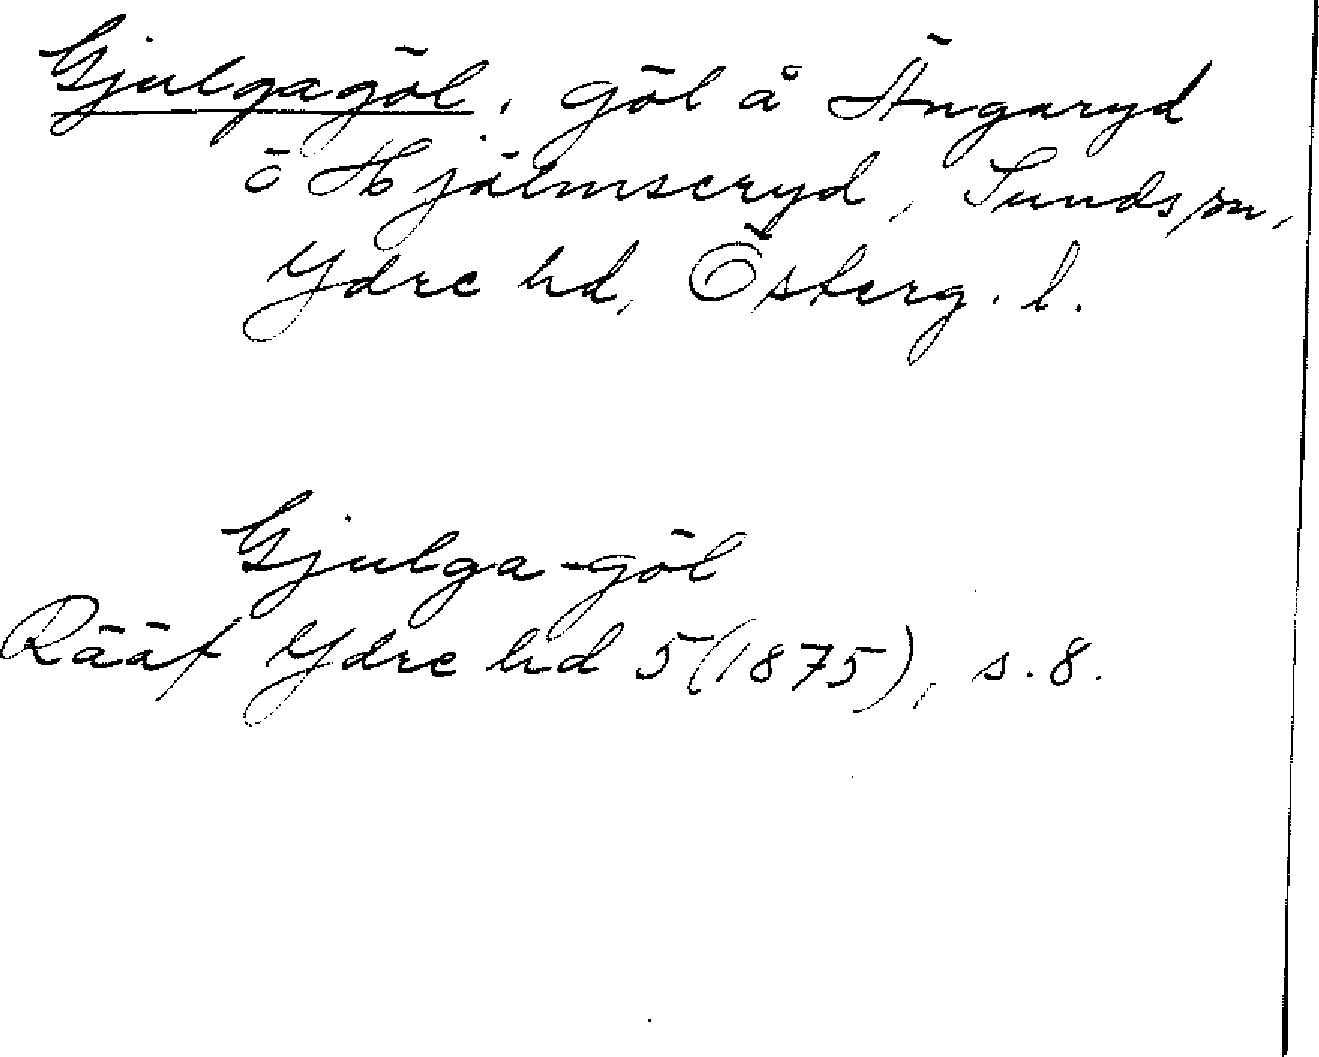 Gjulgagöl, göl å Ängaryd
ö Hjälmseryd, Sunds sn,
Ydre hd, Österg. l.
Gjulga-göl
Rääf Ydre hd 5 (1875), s. 8.